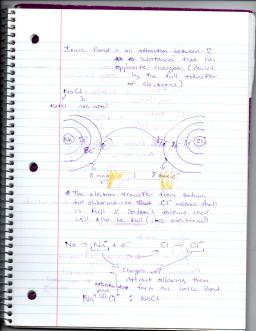 Ionic Bond - an attraction between 2
substances that has
opposite charges, (caused
by the full transfer
of electrons)
NaCl
Metal non metal
Na
Cl
8 max
8 max e⁻
* The electron transfer from sodium
that Cl⁻ valence shell
is full & sodium's valence shell
will also be full
Na → Na⁺ + e⁻ Cl → Cl⁻
charges will
attract allowing them
form an Ionic Bond
Na⁺ Cl⁻ : NaCl